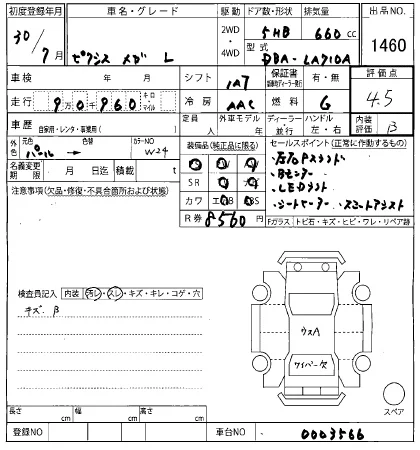 初度登録年月 車名・グレード 駆動 ドア数・形状 排気量 出品NO.
30/7月 ピクシス メガ L 2WD・4WD 5HB 660cc 1460
型式 DBA-LA710A
車検 年 月 シフト IAT 保証書 有・無 評価点
走行 90960 キロ・マイル 冷房 AAC 燃料 G 4.5
車歴 自家用・レンタ・事業用( ) 定員 人 外車モデル 年 ディーラー・並行 ハンドル 左・右 内装評価 B
外色 元色 パール → 色替 カラーNO W24 装備品(純正品に限る) セールスポイント(正常に作動するもの)
名義変更期限 月 日迄 積載 t SR
カワ
R券 8560
注意事項(欠品・修復・不具合箇所および状態)
・LEDライト
・シートヒーター ・スマートアシスト
Fガラス トビ石・キズ・ヒビ・ワレ・リペア跡
検査員記入 内装 汚レ・スレ・キズ・キレ・コゲ・穴
キズ. B
ウスA
ワイパー欠
スペア
長さ cm 幅 cm 高さ cm
登録NO 車台NO 0003566